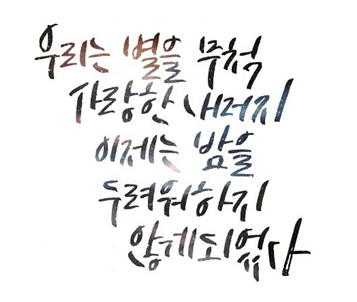 우리는 별을 무척
사랑한 나머지
이제는 밤을
두려워하지
않게 되었다